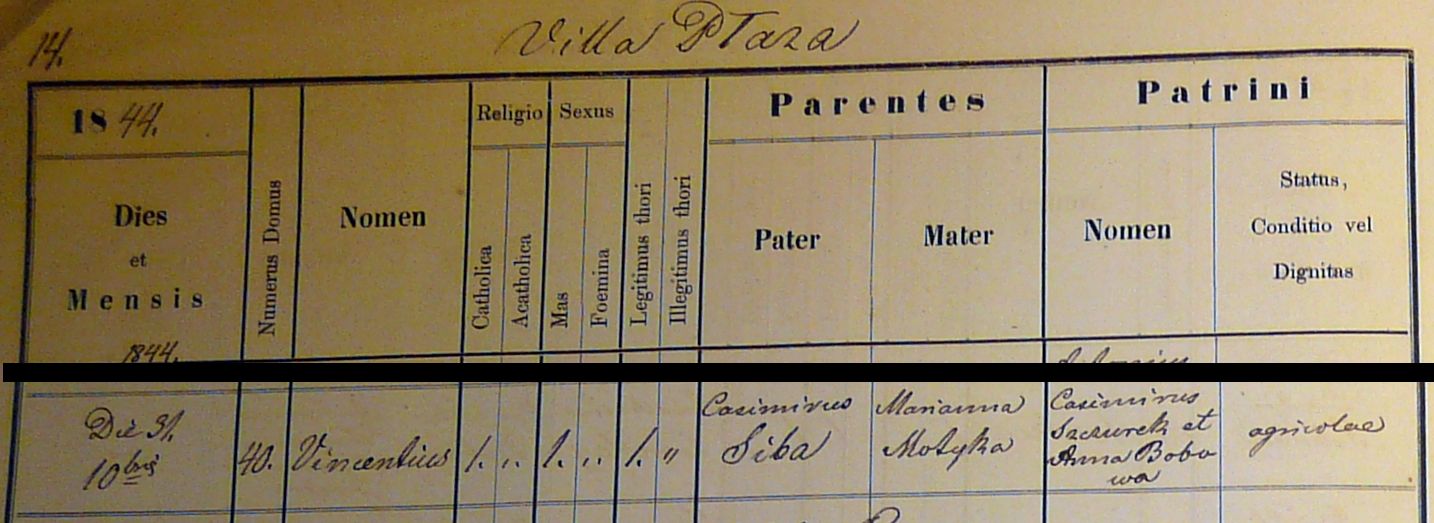 14.
Villa Płaza
1844.
Religio
Sexus
Parentes
Patrini
Dies
et
Mensis
Numerus Domus
Nomen
Catholica
Acatholica
Mas
Foemina
Legitimus thori
Illegitimus thori
Pater
Mater
Nomen
Status,
Conditio vel
Dignitas
1844.
Die 31.
10bris
40.
Vincentius
1.
"
1.
"
1.
"
Casimirus
Siba
Marianna
Motyka
Casimirus
Szczurek et
Anna Bobo
wa
agricolae